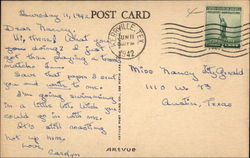 Thursday 11, 1942
POST CARD
Dear Nancy,
Hi, there! What you
you doing? I just
got thru playing a tennis
match.
KERRVILLE, TEX.
JUN 11
1942
Save that paper I sent
you and write to me.
I'm going swimming
in a little bit. Wish you
could go with me.
It's still roasting
hot up here.
Love
Carolyn
Miss Nancy
1110 W
Austin, Texas
ARTVUE